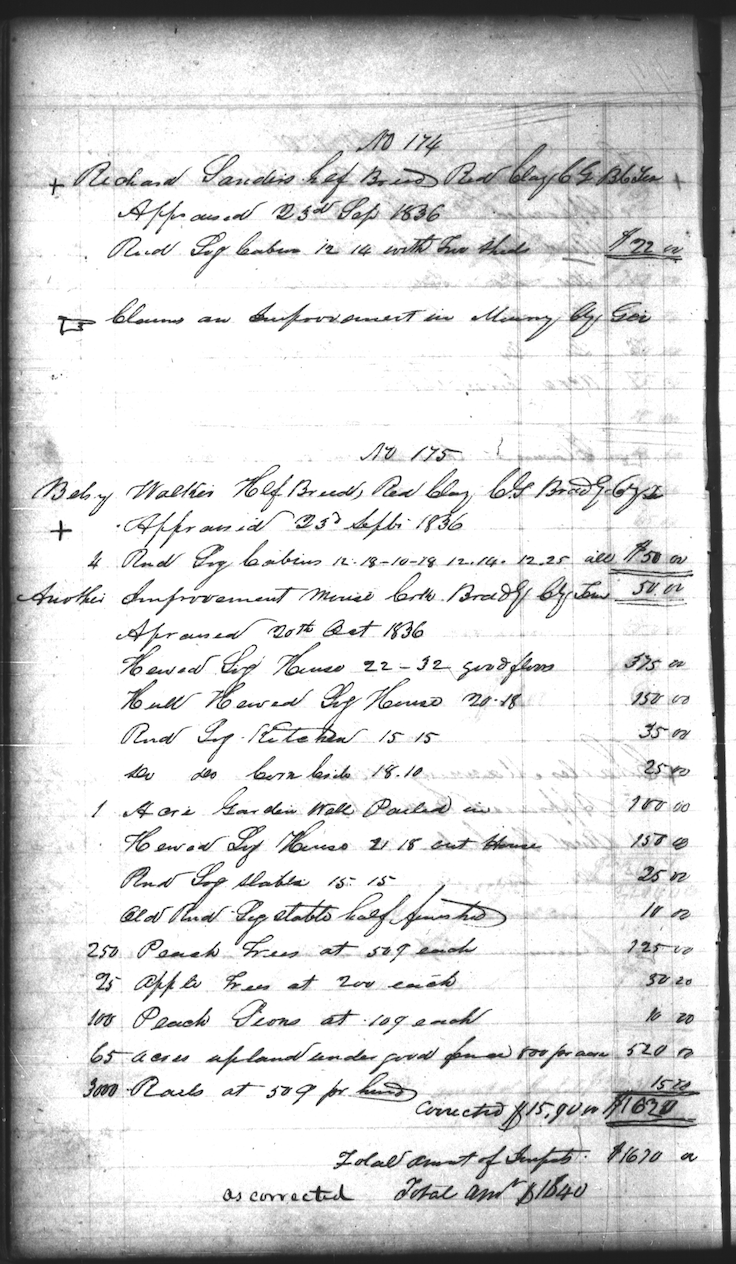 No 174
+ Richard Sanders hlf Breed Red Clay C G
Appraised 23d Sep 1836
Rnd Log Cabin 12 14 with Two Sheds $22 00
Claims an Improvement in Murry Cty Geo
No 175
Betsy Walker Hlf Breed, Red Clay C G Bradly Cty
+ Appraised 23d Septr 1836
4 Rnd Log Cabins 12.18-10-18 12.14. 12.25 all $50 00
Another Improvement Mouse Crk. Bradly Cty Ten 50 00
Apraised 20th Oct 1836
Hewed Log House 22-32 good floors 375 00
Hull Hewed Log House 20.18 150 00
Rnd Log Kitchen 15 15 35 00
do do Corn Crib 18.10 25 00
1 Acre Garden Well Pailed in 100 00
Hewed Log House 21 18 out House 150 00
Rnd Log stable 15. 15 25 00
Old Rnd Log stable half finished 10 00
250 Peach Trees at 50¢ each 125 00
25 Apple Trees at 200 each 50 00
100 Peach Sions at 10¢ each 10 00
65 acres upland under good fence 800 pr acre 520 00
3000 Rails at 50¢ pr. hund 15 00
Corrected $15,90 00 $1620
Total amt of Impts. $1670 00
as corrected Total amt $1640